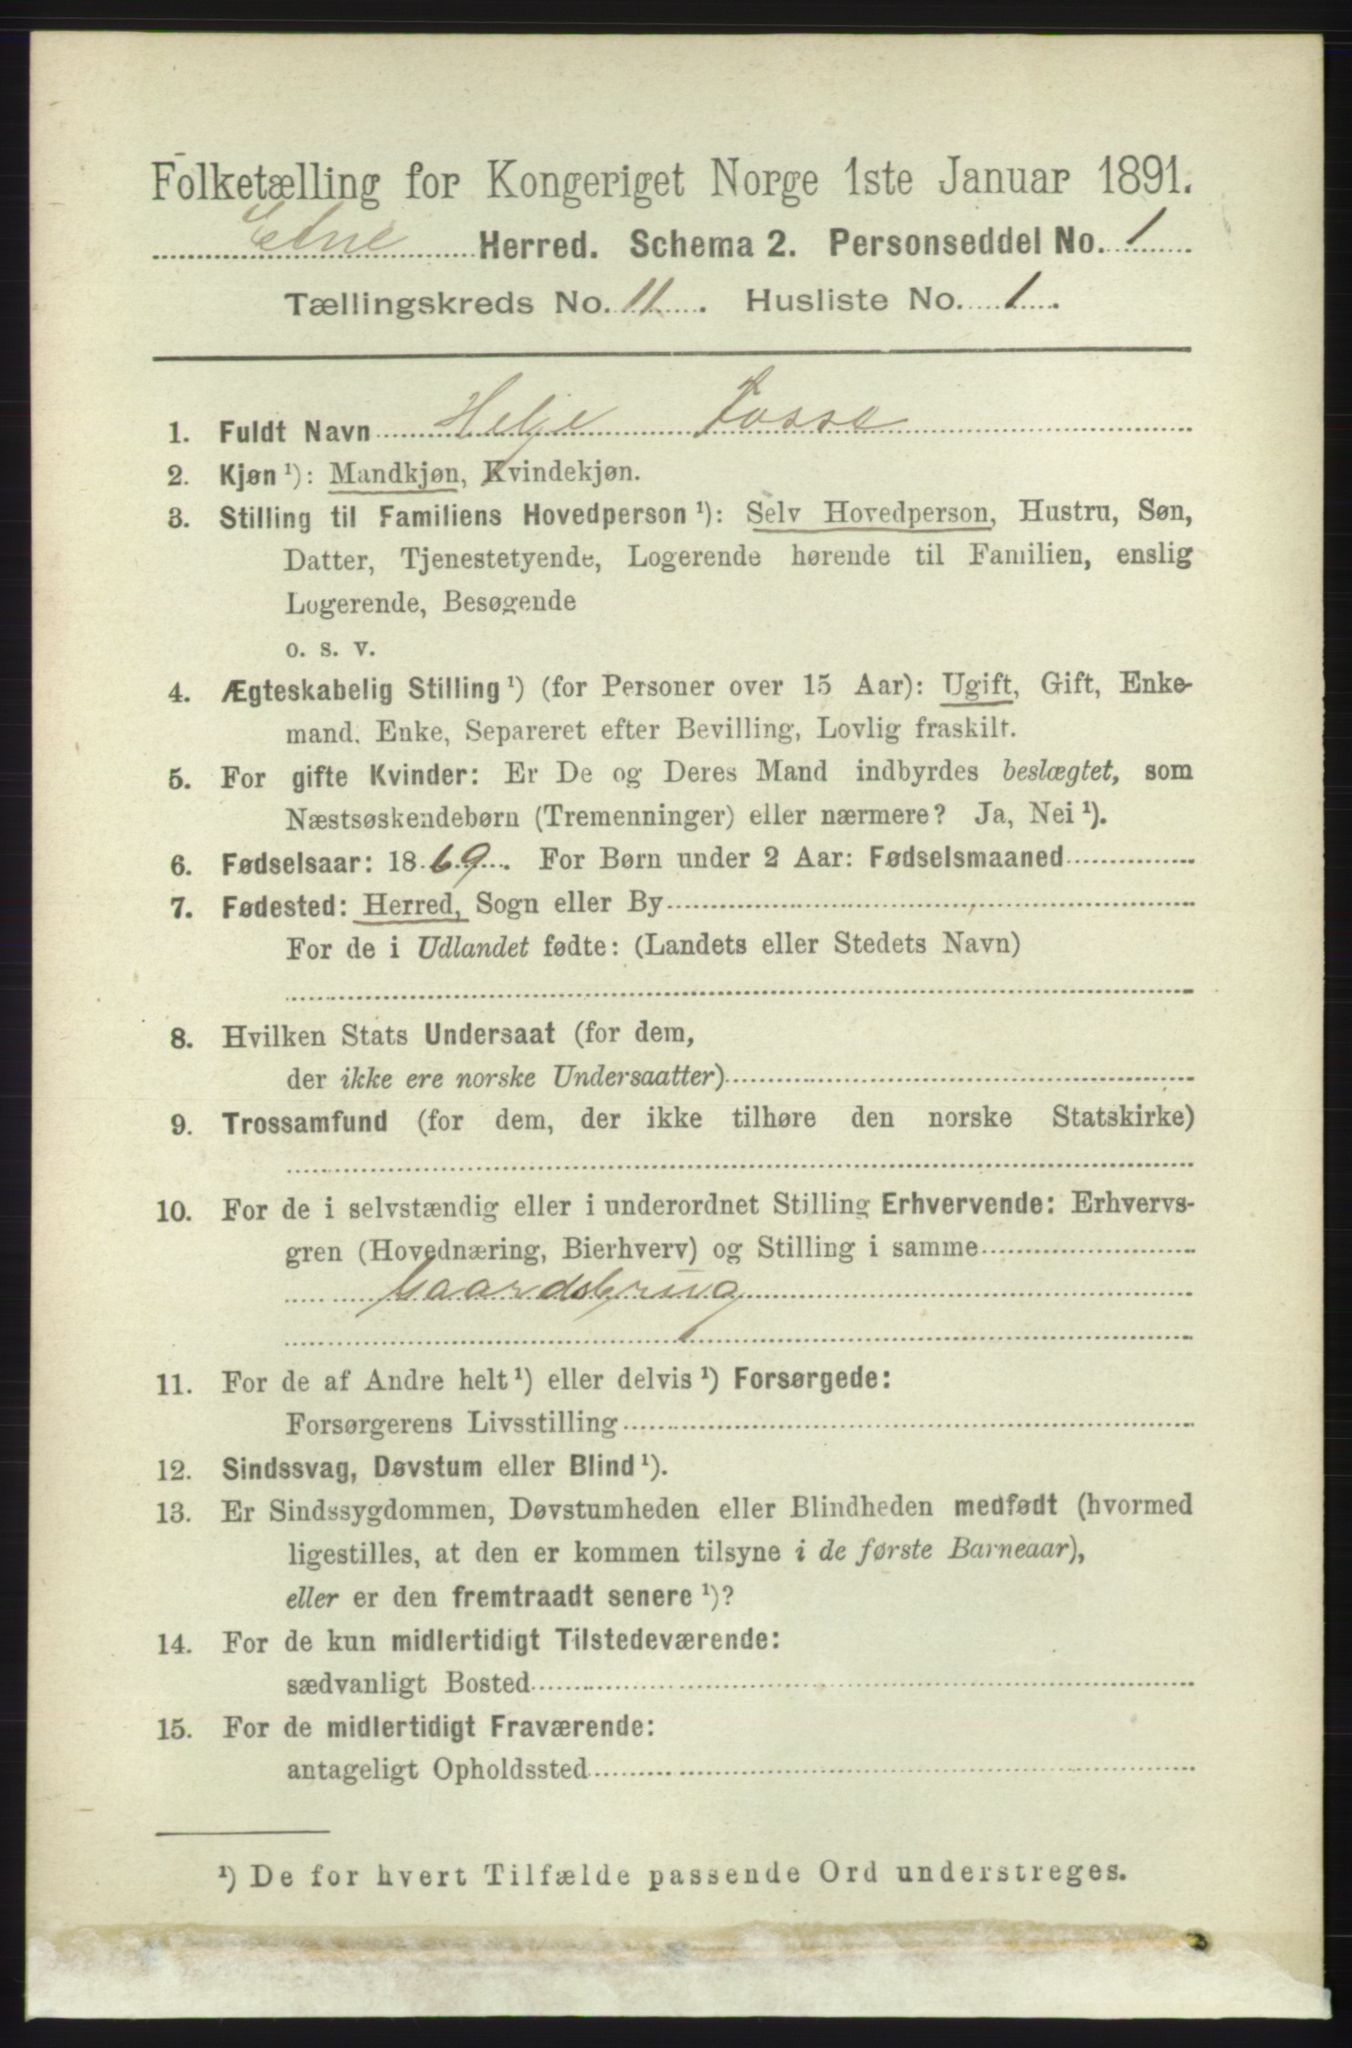 Folketælling for Kongeriget Norge 1ste Januar 1891.
Etne Herred. Schema 2. Personseddel No. 1
Tællingskreds No. 11. Husliste No. 1.
1. Fuldt Navn Helje Fosse
2. Kjøn¹): Mandkjøn, Kvindekjøn.
3. Stilling til Familiens Hovedperson¹): Selv Hovedperson, Hustru, Søn,
Datter, Tjenestetyende, Logerende hørende til Familien, enslig
Logerende, Besøgende
o. s. v.
4. Ægteskabelig Stilling¹) (for Personer over 15 Aar): Ugift, Gift, Enke-
mand, Enke, Separeret efter Bevilling, Lovlig fraskilt.
5. For gifte Kvinder: Er De og Deres Mand indbyrdes beslægtet, som
Næstsøskendebørn (Tremenninger) eller nærmere? Ja, Nei¹).
6. Fødselsaar: 1869. For Børn under 2 Aar: Fødselsmaaned
7. Fødested: Herred, Sogn eller By
For de i Udlandet fødte: (Landets eller Stedets Navn)
8. Hvilken Stats Undersaat (for dem,
der ikke ere norske Undersaatter)
9. Trossamfund (for dem, der ikke tilhøre den norske Statskirke)
10. For de i selvstændig eller i underordnet Stilling Erhvervende: Erhvervs-
gren (Hovednæring, Bierhverv) og Stilling i samme
Gaardsbrug
11. For de af Andre helt¹) eller delvis¹) Forsørgede:
Forsørgerens Livsstilling
12. Sindssvag, Døvstum eller Blind¹).
13. Er Sindssygdommen, Døvstumheden eller Blindheden medfødt (hvormed
ligestilles, at den er kommen tilsyne i de første Barneaar),
eller er den fremtraadt senere¹)?
14. For de kun midlertidigt Tilstedeværende:
sædvanligt Bosted
15. For de midlertidigt Fraværende:
antageligt Opholdssted
¹) De for hvert Tilfælde passende Ord understreges.